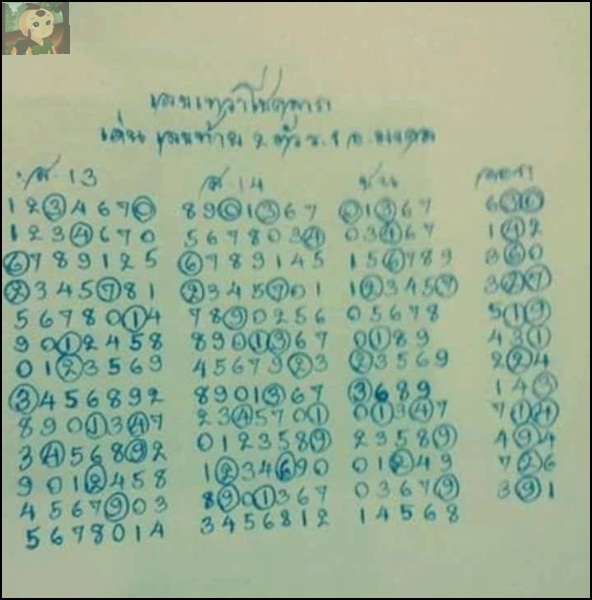 เด่น
ส. 13 ส. 14 ชน
1 2 3 4 6 7 0 8 9 0 1 3 6 7 0 1 3 6 7 6 3 0
1 2 3 4 6 7 0 5 6 7 8 0 3 4 0 3 4 6 7 1 4 2
6 7 8 9 1 2 5 6 7 8 9 1 4 5 1 5 6 7 8 9 3 6 0
2 3 4 5 7 8 1 2 3 4 5 7 0 1 1 2 3 4 5 7 3 2 7
5 6 7 8 0 1 4 7 8 9 0 2 5 6 0 5 6 7 8 5 1 9
9 0 1 2 4 5 8 8 9 0 1 3 6 7 0 1 8 9 4 3 1
0 1 2 3 5 6 9 4 5 6 7 9 2 3 2 3 5 6 9 2 2 4
3 4 5 6 8 9 2 8 9 0 1 3 6 7 3 6 8 9 1 4 3
8 9 0 1 3 4 7 2 3 4 5 7 0 1 0 1 3 4 7 7 1 4
3 4 5 6 8 9 2 0 1 2 3 5 8 9 2 3 5 8 9 4 9 4
9 0 1 2 4 5 8 1 2 3 4 6 9 0 0 1 2 4 9 7 2 6
4 5 6 7 9 0 3 8 9 0 1 3 6 7 0 3 6 7 9 3 9 1
5 6 7 8 0 1 4 3 4 5 6 8 1 2 1 4 5 6 8